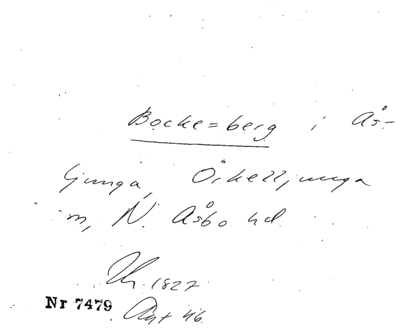 Bocke=berg i Ås-
ljunga, Örkelljunga
sn, N. Åsbo hd.
1827
Nr 7479 46.